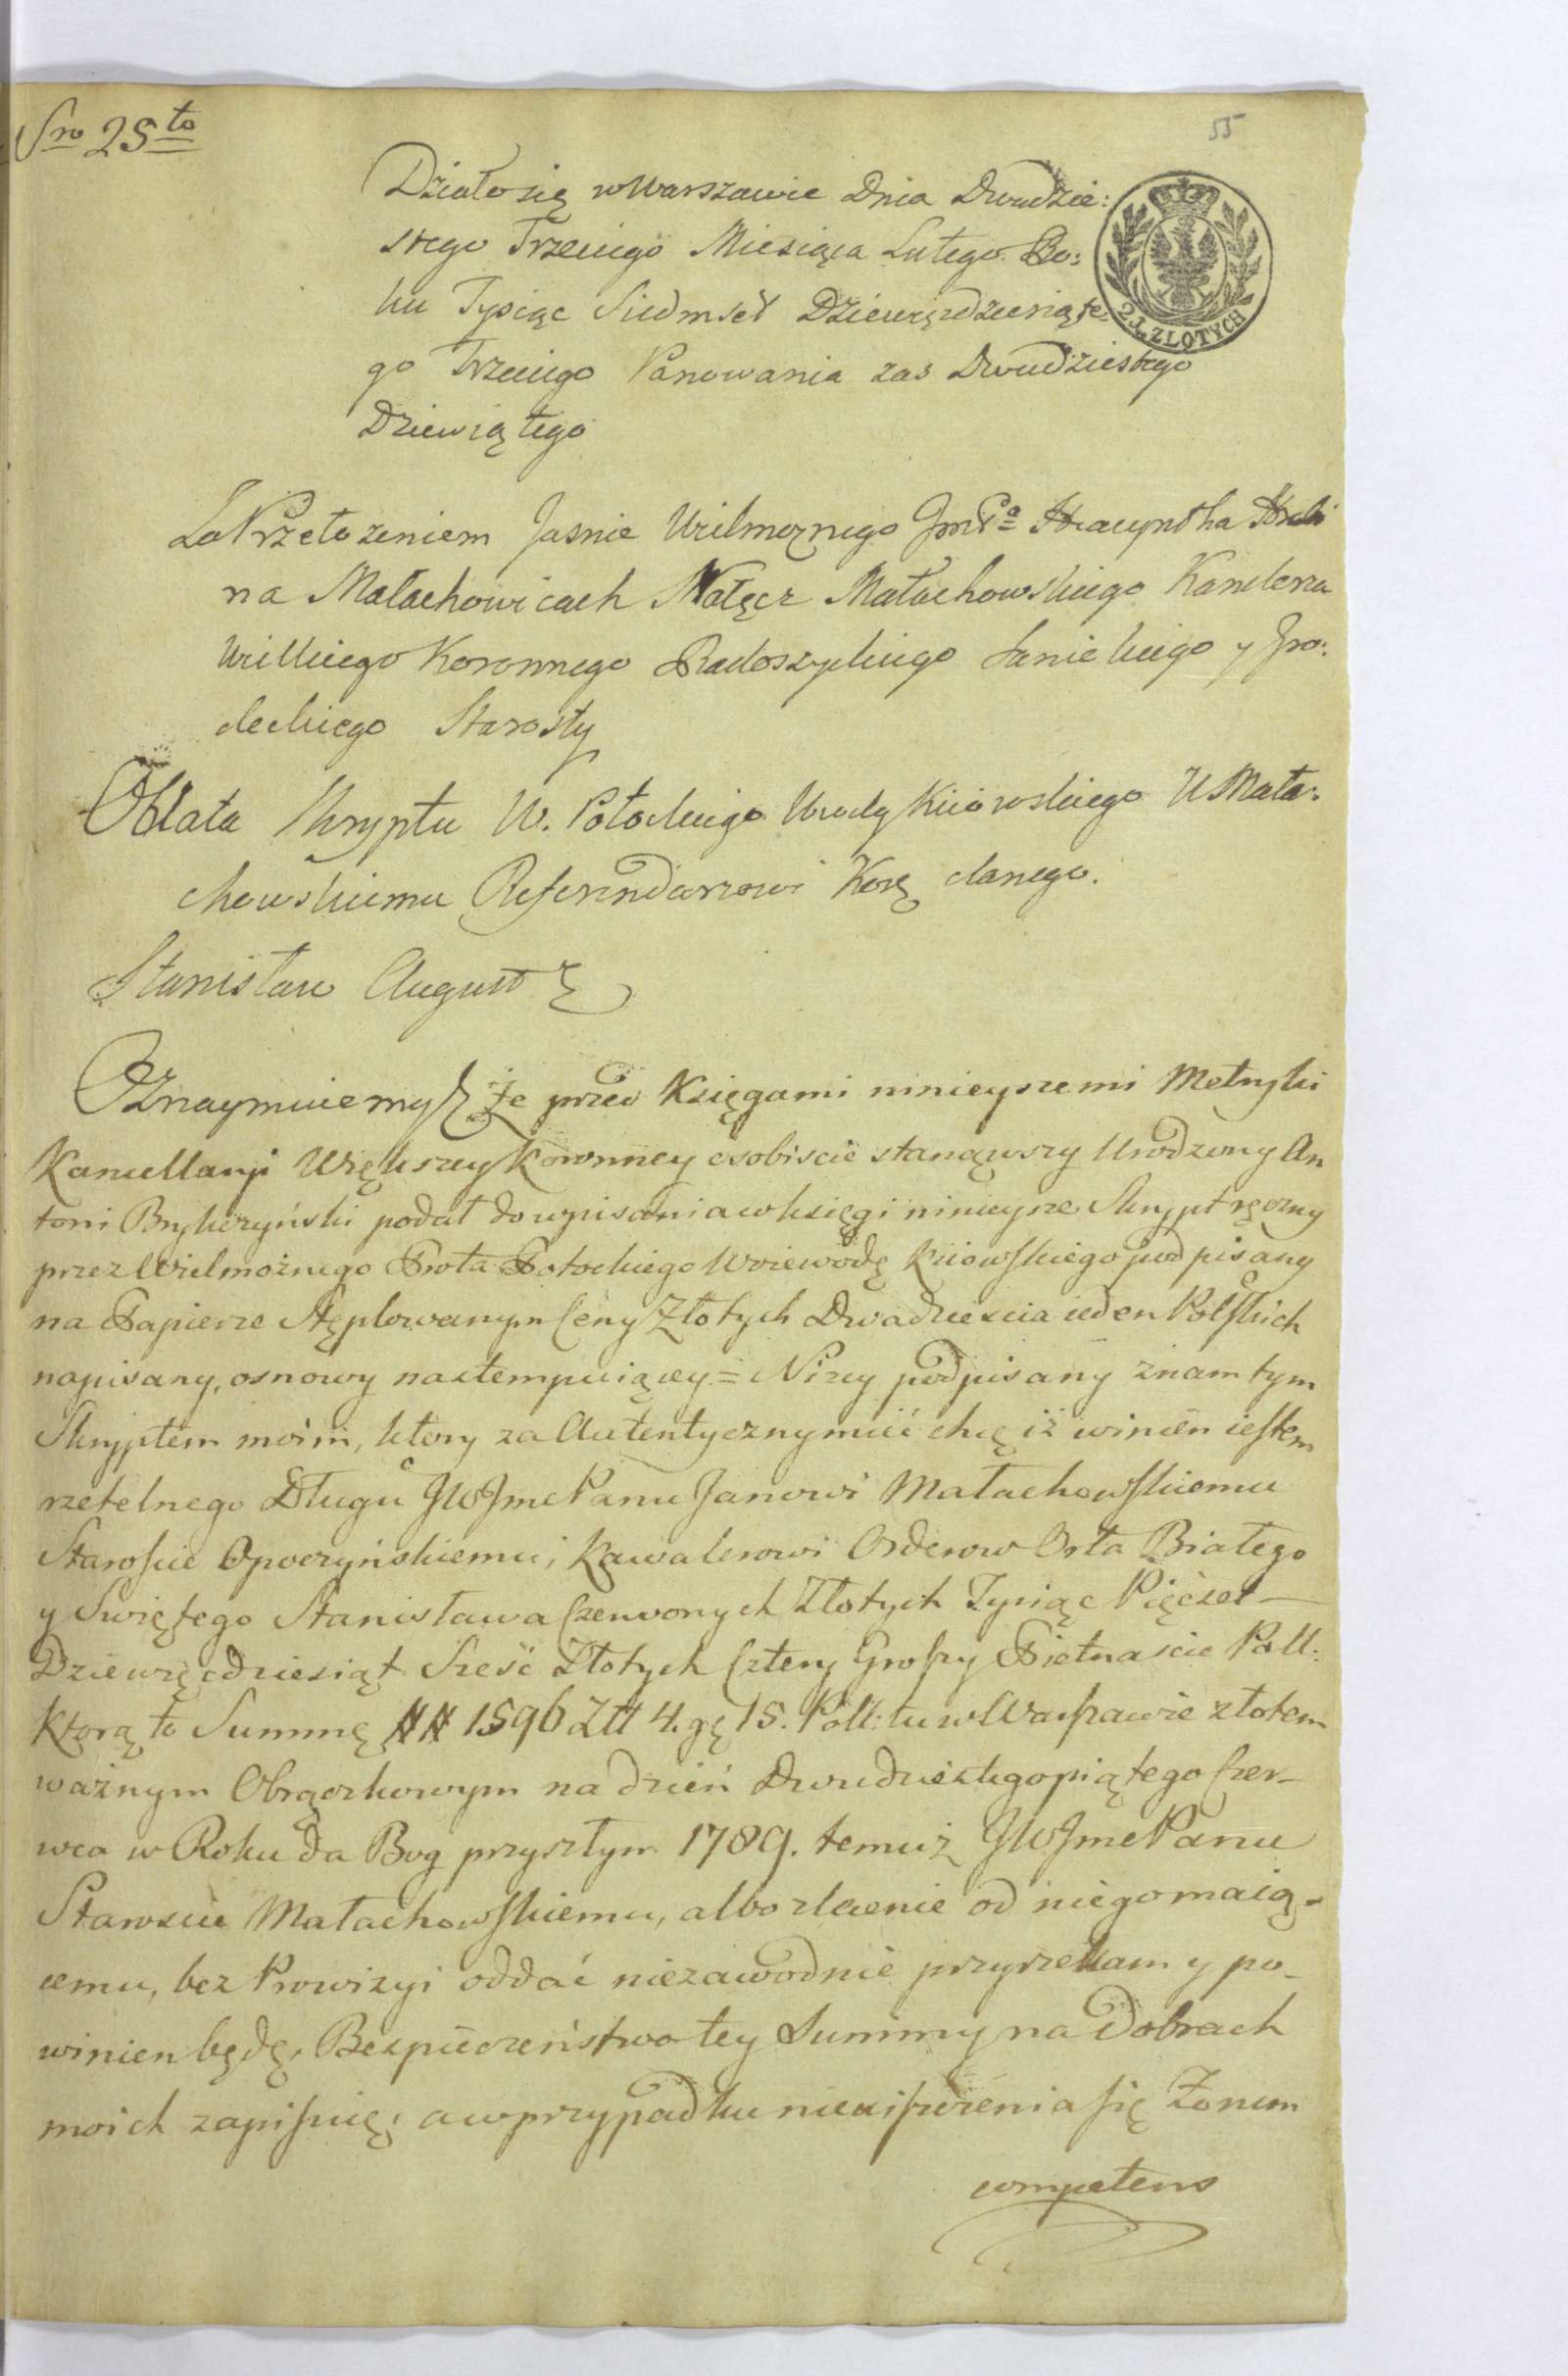 Nro 25to
55
Działo się w Warszawie Dnia Dwudzie:
stego Trzeciego Miesiąca Lutego Ro:
ku Tysiąc Siedmset Dziewięćdziesiąte
go Trzeciego Panowania zas Dwudziestego
Dziewiątego
21. ZŁOTYCH
Za Przełożeniem Jasnie Wielmoznego Hyacyntha Hrabi
na Małachowicach Nałęcz Małachowskiego Kanclerza
Wielkiego Koronnego Radoszyckiego Sanickiego y Gro:
deckiego Starosty
Oblata Skryptu W. Potockiego Wwdy Kiiowskiego U Mała:
chowskiemu Referendarzowi Kor danego.
Stanisław August
Oznaymuiemy że przed Księgami ninieyszemi Metryki
Kancellaryi Większey Koronney osobiscie stanąwszy Urodzony An
toni Brykczyński podał do wpisania w księgi ninieysze Skrypt ręczny
przez Wielmożnego Prota Potockiego Woiewodę Kiiowskiego podpisany
na Papierze Stęplowanym Ceny Złotych Dwadziescia ieden Polskich
napisany, osnowy nastempuiącey = Niżey podpisany znam tym
Skryptem moim, ktory za Autentyczny mieć chcę iż winien iestem
rzetelnego Długu JW Jmć Panu Janowi Małachowskiemu
Staroscie Opoczyńskiemu, Kawalerowi Orderow Orła Białego
y Swiętego Stanisława Czerwonych Złotych Tysiąc Pięćset —
Dziewięćdziesiąt Sześć Złotych Cztery Groszy Piętnascie Poll:
Ktorą to Summę ## 1596 Złł 4. gę 15. Poll: tu w Warszawie złotem
ważnym Obrączkowym na dzień Dwudziestegopiątego Czer-
wca w Roku da Bog przyszłym 1789. temuż JW Jmć Panu
Staroscie Małachowskiemu, albo zlecenie od niego maią-
cemu, bez Prowizyi oddać niezawodnie przyrzekam y po-
winien będę, Bezpieczeństwo tey Summy na Dobrach
moich zapiszuię, a w przypadku nieuiszczenia się Forum
competens